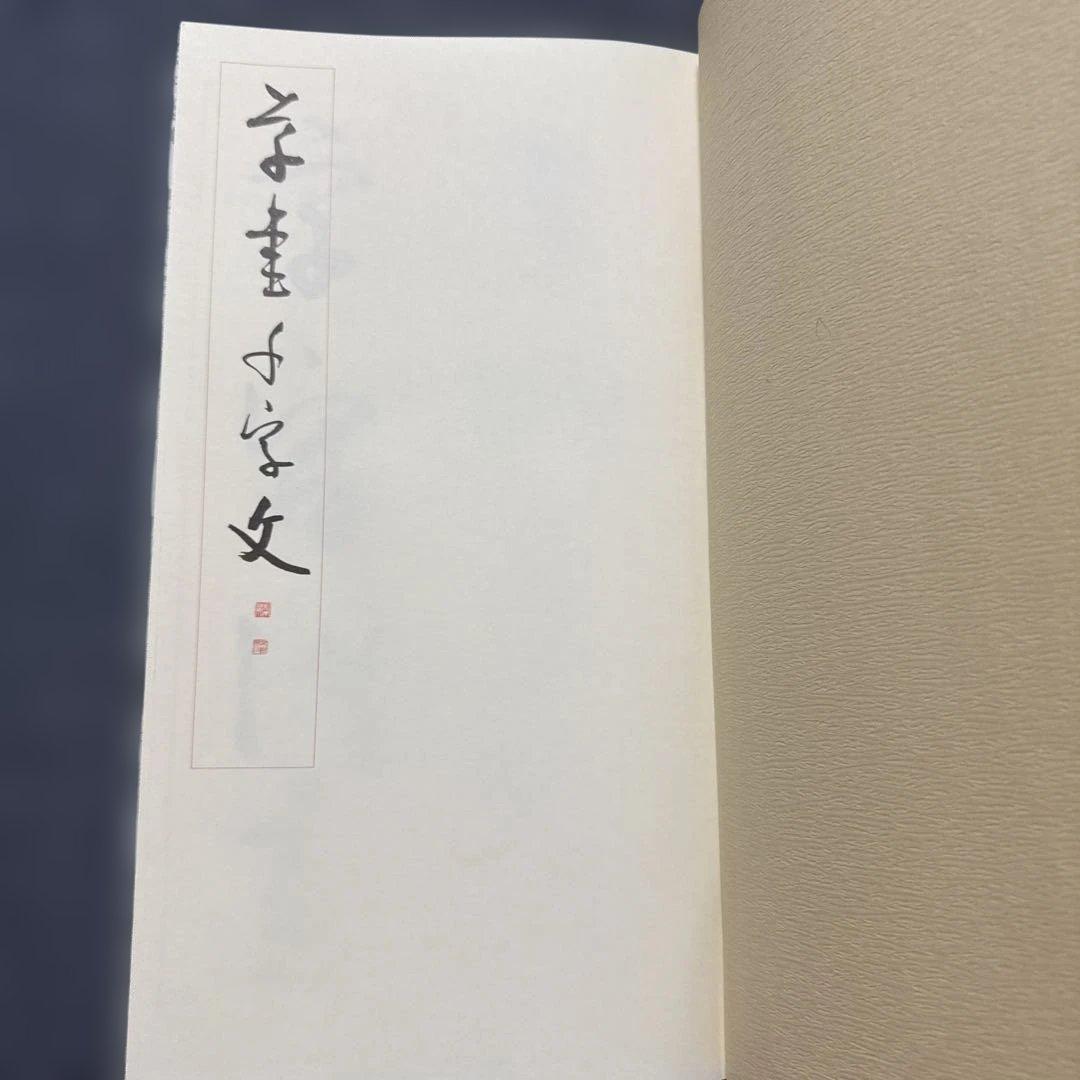 草書千字文